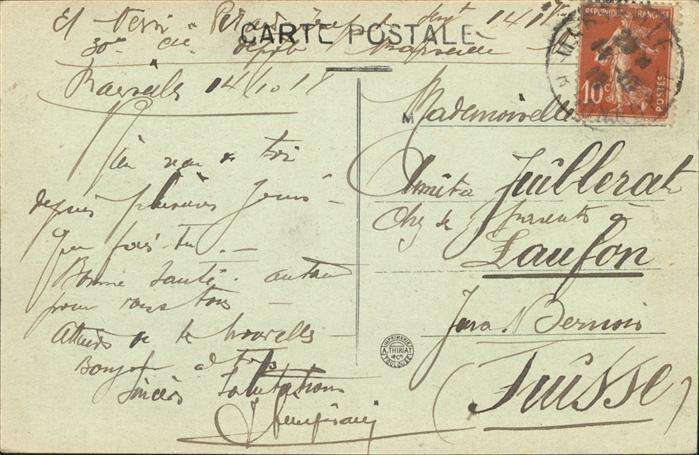 CARTE POSTALE
Marseille 14/10 15
Rien reçu de toi
depuis plusieurs jours
Que fais-tu.
Bonne santé. autant
pour vous tous
Attends de tes nouvelles
Bonjour à tous
Sincères salutations
Mademoiselle
Juillerat
Chez ses parents à
Laufon
Jura-Bernois
(Suisse)
RÉPUBLIQUE FRANÇAISE
10c
POSTES
IMPRIMERIE
A. THIRIAT
& Cie
TOULOUSE